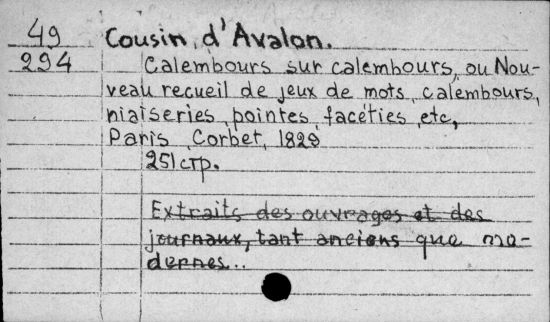 49 Cousin d'Avalon.
294 Calembours sur calembours, ou Nou-
veau recueil de jeux de mots, calembours,
niaiseries, pointes, facéties, etc,
Paris, Corbet, 1829
251 стр.
Extraits des ouvrages et des
journaux, tant anciens que mo-
dernes..